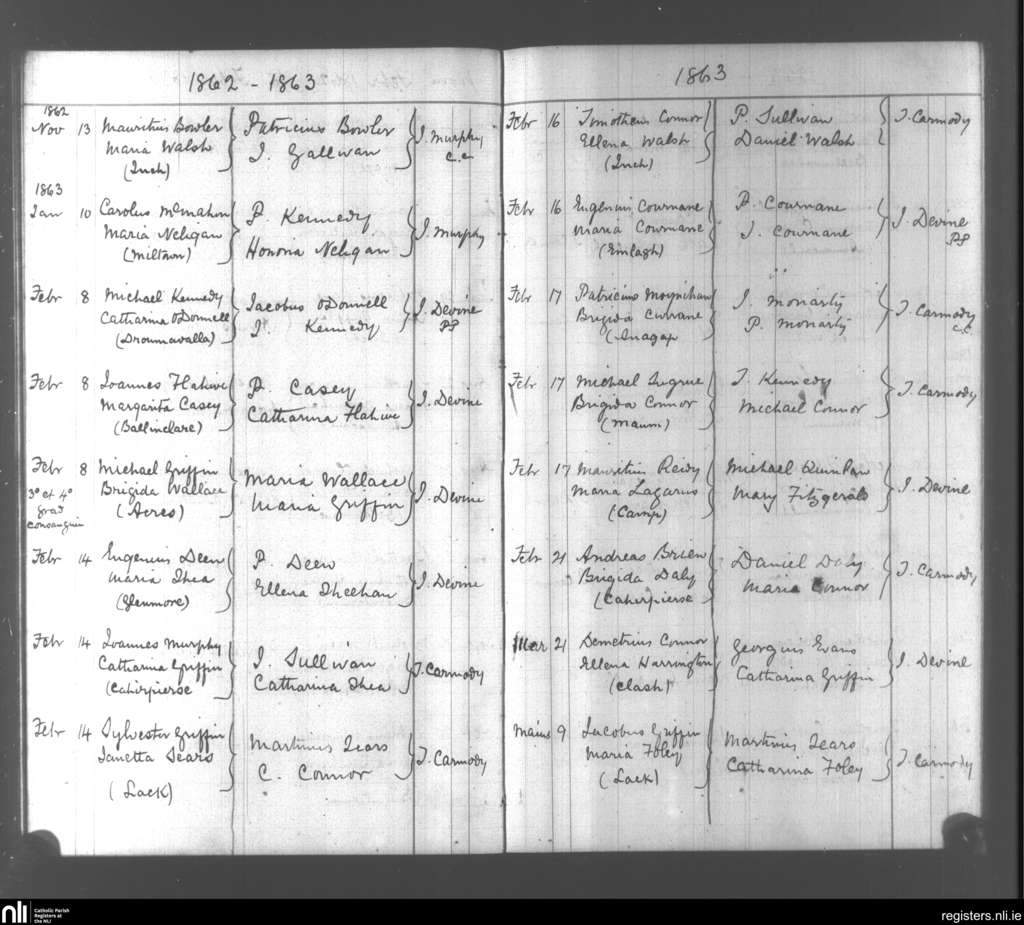 1862 - 1863
1862
Nov 13 Mauritius Bowler Patricius Bowler J. Murphy
Maria Walsh J. Gallivan C.C
(Inch)
1863
Jan 10 Carolus McMahon P. Kennedy J. Murphy
Maria Neligan Honoria Neligan
(Miltown)
Febr 8 Michael Kennedy Jacobus ODonnell J. Devine
Catharina ODonnell J. Kennedy PP
(Droumavalla)
Febr 8 Joannes Flahive P. Casey J. Devine
Margarita Casey Catharina Flahive
(Ballinclare)
Febr 8 Michael Griffin Maria Wallace J. Devine
3º et 4º Brigida Wallace Maria Griffin
grad (Acres)
consanguin
Febr 14 Eugenius Deen P. Deen J. Devine
Maria Shea Ellena Sheehan
(Glenmore)
Febr 14 Joannes Murphy J. Sullivan J. Carmody
Catharina Griffin Catharina Shea
(Cahirpierse
Febr 14 Sylvester Griffin Martinus Sears J. Carmody
Janetta Sears C. Connor
(Lack)
1863
Febr 16 Timotheus Connor P. Sullivan J. Carmody
Ellena Walsh Daniel Walsh
(Inch)
Febr 16 Eugenius Cournane P. Cournane J. Devine
Maria Cournane J. Cournane PP
(Emlagh)
Febr 17 Patricius Moynihan J. Moriarty J. Carmody
Brigida Currane P. Moriarty C.C.
(Anagap
Febr 17 Michael Sugrue J. Kennedy J. Carmody
Brigida Connor Michael Connor
(Maum)
Febr 17 Mauritius Reidy Michael Quinlan J. Devine
Maria Mary Fitzgerald
(Camp)
Febr 21 Andreas Brien Daniel Daly J. Carmody
Brigida Daly Maria Connor
(Cahirpierse
Mar 21 Demetrius Connor Georgius Evans J. Devine
Ellena Harrington Catharina Griffin
(Clash)
Maius 9 Jacobus Griffin Martinus Sears J. Carmody
Maria Foley Catharina Foley
(Lack)
nli
Catholic Parish
Registers at
the NLI
registers.nli.ie